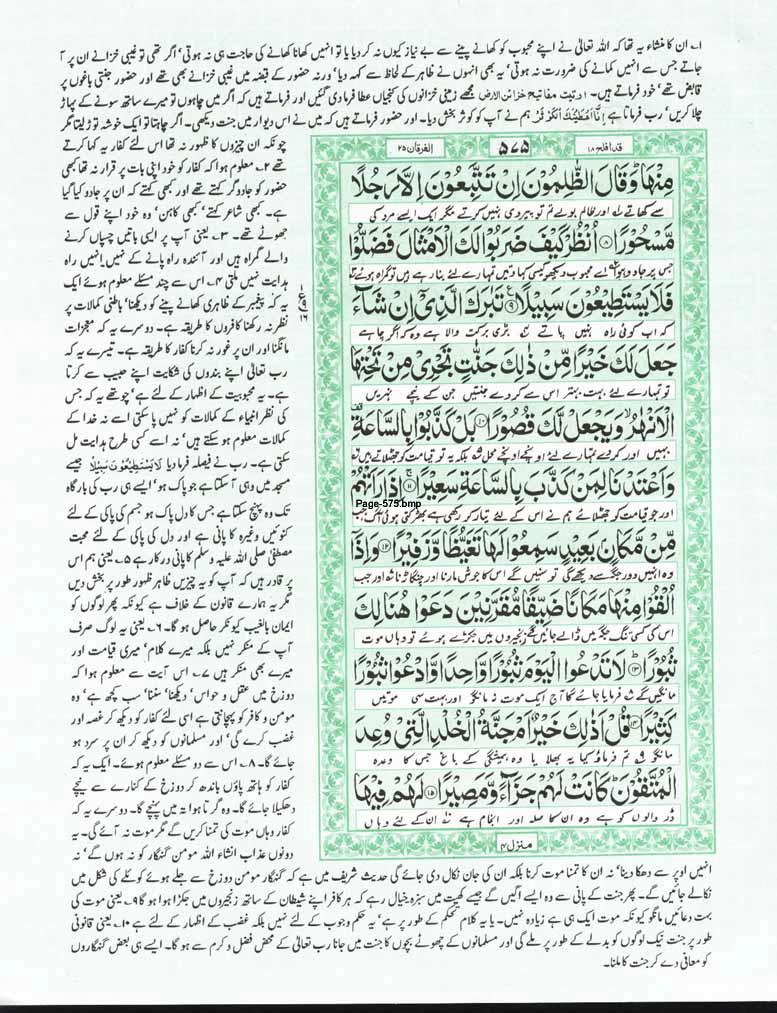 ۱؎ ان کا منشاء یہ تھا کہ اللہ تعالیٰ نے اپنے محبوب کو کھانے پینے سے بے نیاز کیوں نہ کر دیا یا تو انہیں کھانا کھانے کی حاجت ہی نہ ہوتی‘ اگر تھی تو غیبی خزانے ان پر آ
جاتے جس سے انہیں کمانے کی ضرورت نہ ہوتی‘ یہ بھی انہوں نے ظاہر کے لحاظ سے کہہ دیا‘ ورنہ حضور کے قبضہ میں غیبی خزانے بھی تھے اور حضور جنتی باغوں پر
قابض تھے‘ خود فرماتے ہیں۔ اوتیت مفاتیح خزائن الارض مجھے زمینی خزانوں کی کنجیاں عطا فرما دی گئیں اور فرماتے ہیں کہ اگر میں چاہوں تو میرے ساتھ سونے کے پہاڑ
چلا کریں‘ رب فرماتا ہے اِنَّآ اَعْطَیْنٰکَ الْکَوْثَرَ ہم نے آپ کو کوثر بخش دیا۔ اور حضور فرماتے ہیں کہ میں نے اس دیوار میں جنت دیکھی۔ اگر چاہتا تو ایک خوشہ توڑ لیتا مگر
چونکہ ان چیزوں کا ظہور نہ تھا اس لئے کفار یہ کہا کرتے
تھے ۲؎ معلوم ہوا کہ کفار کو خود اپنی بات پر قرار نہ تھا کبھی
حضور کو جادوگر کہتے تھے اور کبھی کہتے کہ ان پر جادو کیا گیا
ہے۔ کبھی شاعر کہتے‘ کبھی کاہن‘ وہ خود اپنے قول سے
جھوٹے تھے۔ ۳؎ یعنی آپ پر ایسی باتیں چسپاں کرنے
والے گمراہ ہیں اور آئندہ راہ پانے کے نہیں انہیں راہ
ہدایت نہیں ملتی ۴؎ اس سے چند مسئلے معلوم ہوئے ایک
یہ کہ پیغمبر کے ظاہری کھانے پینے کو دیکھنا‘ باطنی کمالات پر
نظر نہ رکھنا کافروں کا طریقہ ہے۔ دوسرے یہ کہ معجزات
مانگنا اور ان پر غور نہ کرنا کفار کا طریقہ ہے۔ تیسرے یہ کہ
رب تعالیٰ اپنے بندوں کی شکایت اپنے حبیب سے کرتا
ہے۔ یہ محبوبیت کے اظہار کے لئے ہے‘ چوتھے یہ کہ جس
کی نظر انبیاء کے کمالات کو نہیں پا سکتی اسے نہ خدا کے
کمالات معلوم ہو سکتے ہیں‘ نہ اسے کسی طرح ہدایت مل
سکتی ہے۔ رب نے فیصلہ فرما دیا لَا یَسْتَطِیْعُوْنَ سَبِیْلًا جیسے
مسجد میں وہی آ سکتا ہے جو پاک ہو‘ ایسے ہی رب کی بارگاہ
تک وہ پہنچ سکتا ہے جس کا دل پاک ہو جسم کی پاکی کے لئے
کنوئیں وغیرہ کا پانی ہے اور دل کی پاکی کے لئے محبت
مصطفیٰ صلی اللہ علیہ وسلم کا پانی درکار ہے ۵؎ یعنی ہم اس
پر قادر ہیں کہ آپ کو یہ چیزیں ظاہر ظہور طور پر بخش دیں
مگر یہ ہمارے قانون کے خلاف ہے کیونکہ پھر لوگوں کو
ایمان بالغیب کیونکر حاصل ہو گا۔ ۶؎ یعنی یہ لوگ صرف
آپ کے منکر نہیں بلکہ میرے کلام‘ میری قیامت اور
میرے بھی منکر ہیں ۷؎ اس آیت سے معلوم ہوا کہ
دوزخ میں عقل و حواس‘ دیکھنا‘ سننا‘ سب کچھ ہے‘ وہ
مومن و کافر کو پہچانتی ہے اسی لئے کفار کو دیکھ کر غصہ اور
غضب کرے گی‘ اور مسلمانوں کو دیکھ کر ان پر سرد ہو
جائے گا۔ ۸؎ اس سے دو مسئلے معلوم ہوئے۔ ایک یہ کہ
کفار کو ہاتھ پاؤں باندھ کر دوزخ کے کنارے سے نیچے
دھکیلا جائے گا۔ وہ گرتا ہوا تہ میں پہنچے گا۔ دوسرے یہ کہ
کفار وہاں موت کی تمنا کریں گے مگر موت نہ آئے گی۔ یہ
دونوں عذاب انشاء اللہ مومن گنہگار کو نہ ہوں گے‘ نہ
قد افلح ۱۸
۵۷۵
الفرقان ۲۵
مِنْهَا ؕ وَ قَالَ الظّٰلِمُوْنَ اِنْ تَتَّبِعُوْنَ اِلَّا رَجُلًا
سے کھاتے اور ظالم بولے تم تو پیروی نہیں کرتے مگر ایک ایسے مرد کی
مَّسْحُوْرًا ۝۸ اُنْظُرْ كَیْفَ ضَرَبُوْا لَكَ الْاَمْثَالَ فَضَلُّوْا
جس پر جادو ہوا اے محبوب دیکھو کیسی کہاوتیں تمہارے لئے بنا رہے ہیں تو گمراہ ہوئے
فَلَا یَسْتَطِیْعُوْنَ سَبِیْلًا ۝۹ تَبٰرَكَ الَّذِیْۤ اِنْ شَآءَ
کہ اب کوئی راہ نہیں پاتے بڑی برکت والا ہے وہ کہ اگر چاہے
جَعَلَ لَكَ خَیْرًا مِّنْ ذٰلِكَ جَنّٰتٍ تَجْرِیْ مِنْ تَحْتِهَا
تو تمہارے لئے بہت بہتر اس سے کر دے جنتیں جن کے نیچے نہریں
الْاَنْهٰرُ ۙ وَ یَجْعَلْ لَّكَ قُصُوْرًا ۝۱۰ بَلْ كَذَّبُوْا بِالسَّاعَةِ
بہیں اور کرے تمہارے لئے اونچے اونچے محل بلکہ یہ تو قیامت کو جھٹلاتے ہیں
وَ اَعْتَدْنَا لِمَنْ كَذَّبَ بِالسَّاعَةِ سَعِیْرًا ۝۱۱ اِذَا رَاَتْهُمْ
Page-575.bmp
اور جو قیامت کو جھٹلائے ہم نے اس کے لئے تیار کر رکھی ہے بھڑکتی ہوئی آگ جب
مِّنْ مَّكَانٍۭ بَعِیْدٍ سَمِعُوْا لَهَا تَغَیُّظًا وَّ زَفِیْرًا ۝۱۲ وَ اِذَاۤ
وہ انہیں دور جگہ سے دیکھے گی تو سنیں گے اس کا جوش مارنا اور چنگھاڑنا اور جب
اُلْقُوْا مِنْهَا مَكَانًا ضَیِّقًا مُّقَرَّنِیْنَ دَعَوْا هُنَالِكَ
اس کی کسی تنگ جگہ میں ڈالے جائیں گے زنجیروں میں جکڑے ہوئے تو وہاں موت
ثُبُوْرًا ۝۱۳ لَا تَدْعُوا الْیَوْمَ ثُبُوْرًا وَّاحِدًا وَّ ادْعُوْا ثُبُوْرًا
مانگیں گے فرمایا جائے گا آج ایک موت نہ مانگو اور بہت سی موتیں
كَثِیْرًا ۝۱۴ قُلْ اَذٰلِكَ خَیْرٌ اَمْ جَنَّةُ الْخُلْدِ الَّتِیْ وُعِدَ
مانگو تم فرماؤ کیا یہ بھلا یا وہ ہمیشگی کے باغ جس کا وعدہ
الْمُتَّقُوْنَ ؕ كَانَتْ لَهُمْ جَزَآءً وَّ مَصِیْرًا ۝۱۵ لَهُمْ فِیْهَا
ڈر والوں کو ہے وہ ان کا صلہ اور انجام ہے ان کے لئے وہاں
منزل ۴
انہیں اوپر سے دھکا دینا‘ نہ ان کا تمنا موت کرنا بلکہ ان کی جان نکال دی جائے گی حدیث شریف میں ہے کہ گنہگار مومن دوزخ سے جلے ہوئے کوئلے کی شکل میں
نکالے جائیں گے۔ پھر جنت کے پانی سے وہ ایسے اگیں گے جیسے کھیت میں سبزہ خیال رہے کہ ہر کافر اپنے شیطان کے ساتھ زنجیروں میں جکڑا ہوا ہو گا ۹؎ یعنی موت کی
بہت دعائیں مانگو کیونکہ موت ایک ہی ہے زیادہ نہیں۔ یا یہ کلام تحکم کے طور پر ہے‘ یہ حکم وجوب کے لئے نہیں بلکہ غضب کے اظہار کے لئے ہے ۱۰؎ یعنی قانونی
طور پر جنت نیک لوگوں کو بدلے کے طور پر ملے گی اور مسلمانوں کے چھوٹے بچوں کا جنت میں جانا رب تعالیٰ کے محض فضل و کرم سے ہو گا۔ ایسے ہی بعض گنہگاروں
کو معافی دے کر جنت کا ملنا۔